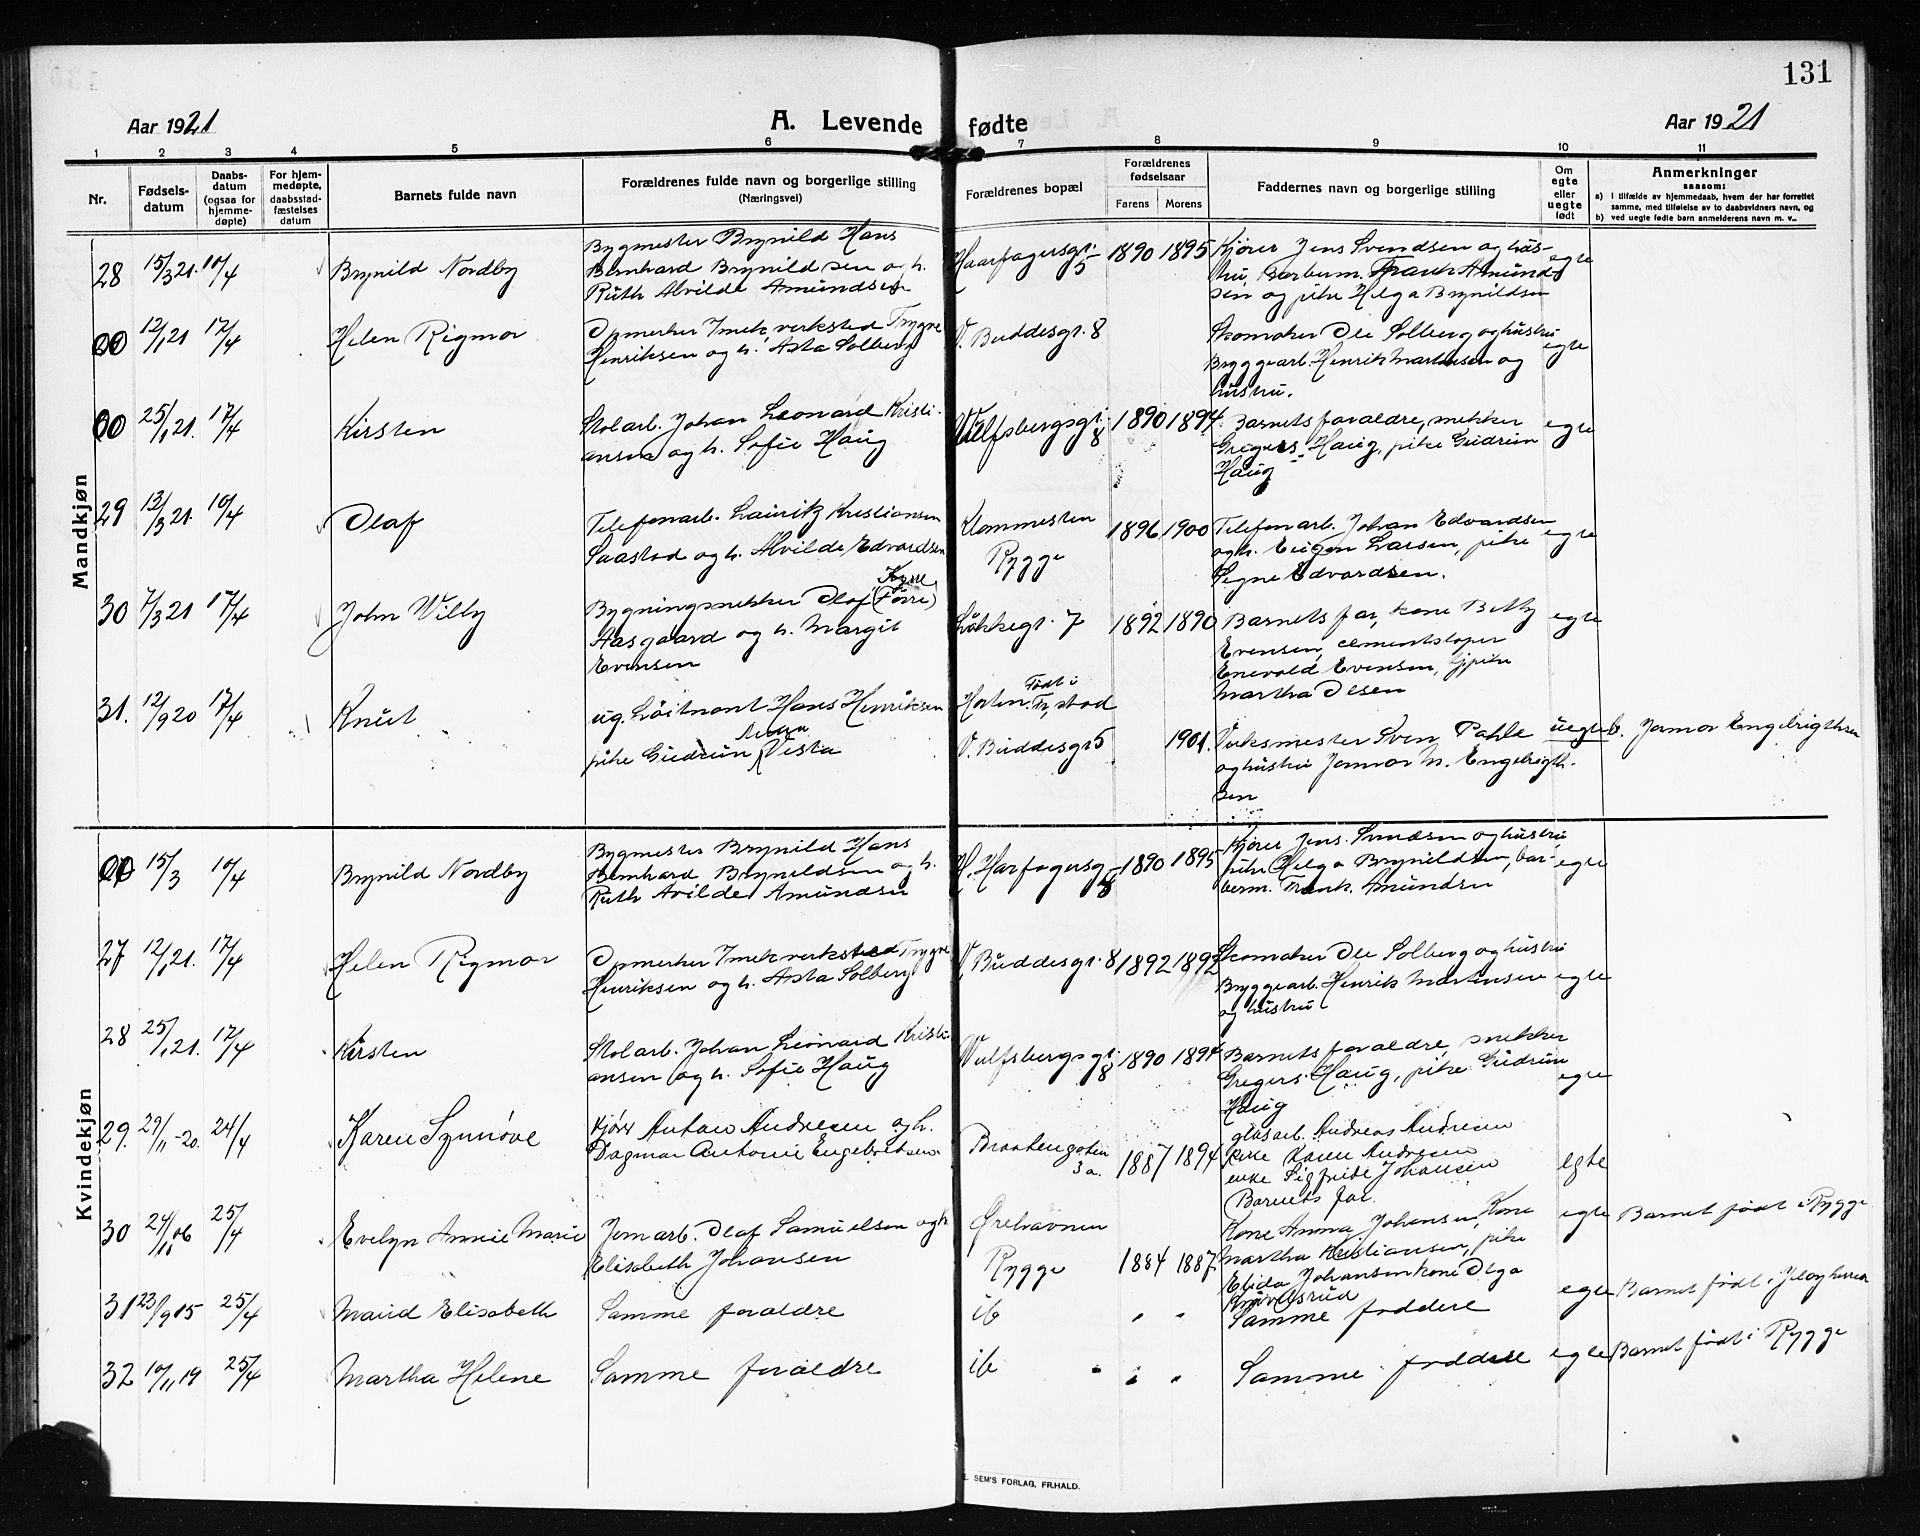 131
Aar 1921
A. Levende fødte
Aar 1921
1 2 3 4 5 6 7 8 9 10 11
Nr.
Fødsels-
datum
Daabs-
datum
(ogsaa for
hjemme-
døpte)
For hjem-
medøpte,
daabsstad-
fæstelses
datum
Barnets fulde navn
Forældrenes fulde navn og borgerlige stilling
(Næringsvei)
Forældrenes bopæl
Forældrenes
fødselsaar
Farens
Morens
Faddernes navn og borgerlige stilling
Om
egte
eller
uegte
født
Anmerkninger
saasom:
a) i tilfælde av hjemmedaab, hvem der har forrettet
samme, med tilføielse av to daabsvidners navn, og
b) ved uegte fødte barn anmelderens navn m. v..
Mandkjøn
28 15/3 21. 10/4 Brynild Nordby
Bygmester Brynild Hans
Bernhard Brynildsen og h.
Ruth Alvilde Amundsen
Haarfagersgt.
5
1890 1895
Kjører Jens Svendsen og hus-
tru, Barberm. Frank Amund-
sen og pike Helga Brynildsen
egte
12/1 21 17/4 Helen Rigmor
Opmerker I mek verksted Trygve
Henriksen og h. Asta Solberg
V. Buddesgt. 8
Skomaker Ole Solberg og hustru
Bryggearb. Henrik Martinsen og
hustru.
egte
25/1 21. 17/4 Kirsten
Stolarb. Johan Leonard Kristi-
ansen og h. Sofie Haug
Wulfsbergsgt.
8
1890 1894
Barnets forældre, snekker
Gregers Haug, pike Gudrun
Haug
egte
29 13/3 21. 10/4 Olaf
Telefonarb. Lauritz Kristiansen
Saastad og h. Alvilde Edvardsen
Klommesten
Rygge
1896 1900
Telefonarb. Johan Edvardsen
og h. Eugen Larsen, pike
Signe Edvardsen.
egte
30 7/3 21 17/4 John Willy
Bygningssnekker Olaf (Tørre)
Aasgaard og h. Margit
Evensen
Løkkegt. 7
1892 1890
Barnets far, kone Betty
Evensen, cementstøper
Enevold Evensen, pike
Martha Olsen
egte
31. 12/9 20 17/4 Knut
ug. Løitnant Hans Henriksen
pike Gudrun Vesta
Horten. Født i
Fr.stad
V. Buddesgt 5
1901.
Verksmester Sven Pahle
og hustru Jenmor M. Engebrigth-
sen
uegte
b. Jenmor Engebrigthsen
Kvindekjøn
15/3 10/4 Brynild Nordby
Bygmester Brynild Hans
Bernhard Brynildsen og h.
Ruth Avilde Amundsen
H. Harfagersg
1890 1895
Kjører Jens. Svendsen og hustru
pike Helga Brynildsen, bar-
berm. Frank. Amundsen
egte
27 12/1 21. 17/4 Helen Rigmor
Opmerker I mek verksted Trygve
Henriksen og h. Asta Solberg
V. Buddesgt. 8
1892 1892
Skomaker Ole Solberg og hustru
Bryggearb. Henrik Martensen
og hustru
egte
28 25/1 21. 17/4 Kirsten
Stolarb. Johan Leonard Kristi-
ansen og h. Sofie Haug
Wulfsbergsgt.
8
1890 1894
Barnets forældre, snekker
Gregers Haug, pike Gudrun
Haug
egte
29. 29/11-20. 24/4 Karen Synnøve
Kjører Anton Andresen og h.
Dagmar Antonie Engebretsen.
Braatengaten
3a.
1887 1894
glasarb. Andreas Andresen
Karen Andresen
enke Sigfride Johansen
Barnets far.
egte
30 24/11 06 25/4 Evelyn Annie Marie
Jernarb. Olaf Samuelsen og h
Elisabeth Johansen
Ørehavnen
Rygge
1884 1887.
Kone Anna Johansen, Kone
Martha Kristiansen, pike
Elida Johansen kone Olga
egte
Barnet født i Rygge
31 23/9 15 25/4 Maud Elisabeth
Samme forældre
ib
" "
Samme faddere
egte
Barnet født i Jeløy herred
32 10/11 19 25/4 Martha Helene
Samme forældre
ib
" "
Samme faddere
egte
Barnet født i Rygge
E. SEM'S FORLAG, FR.HALD.